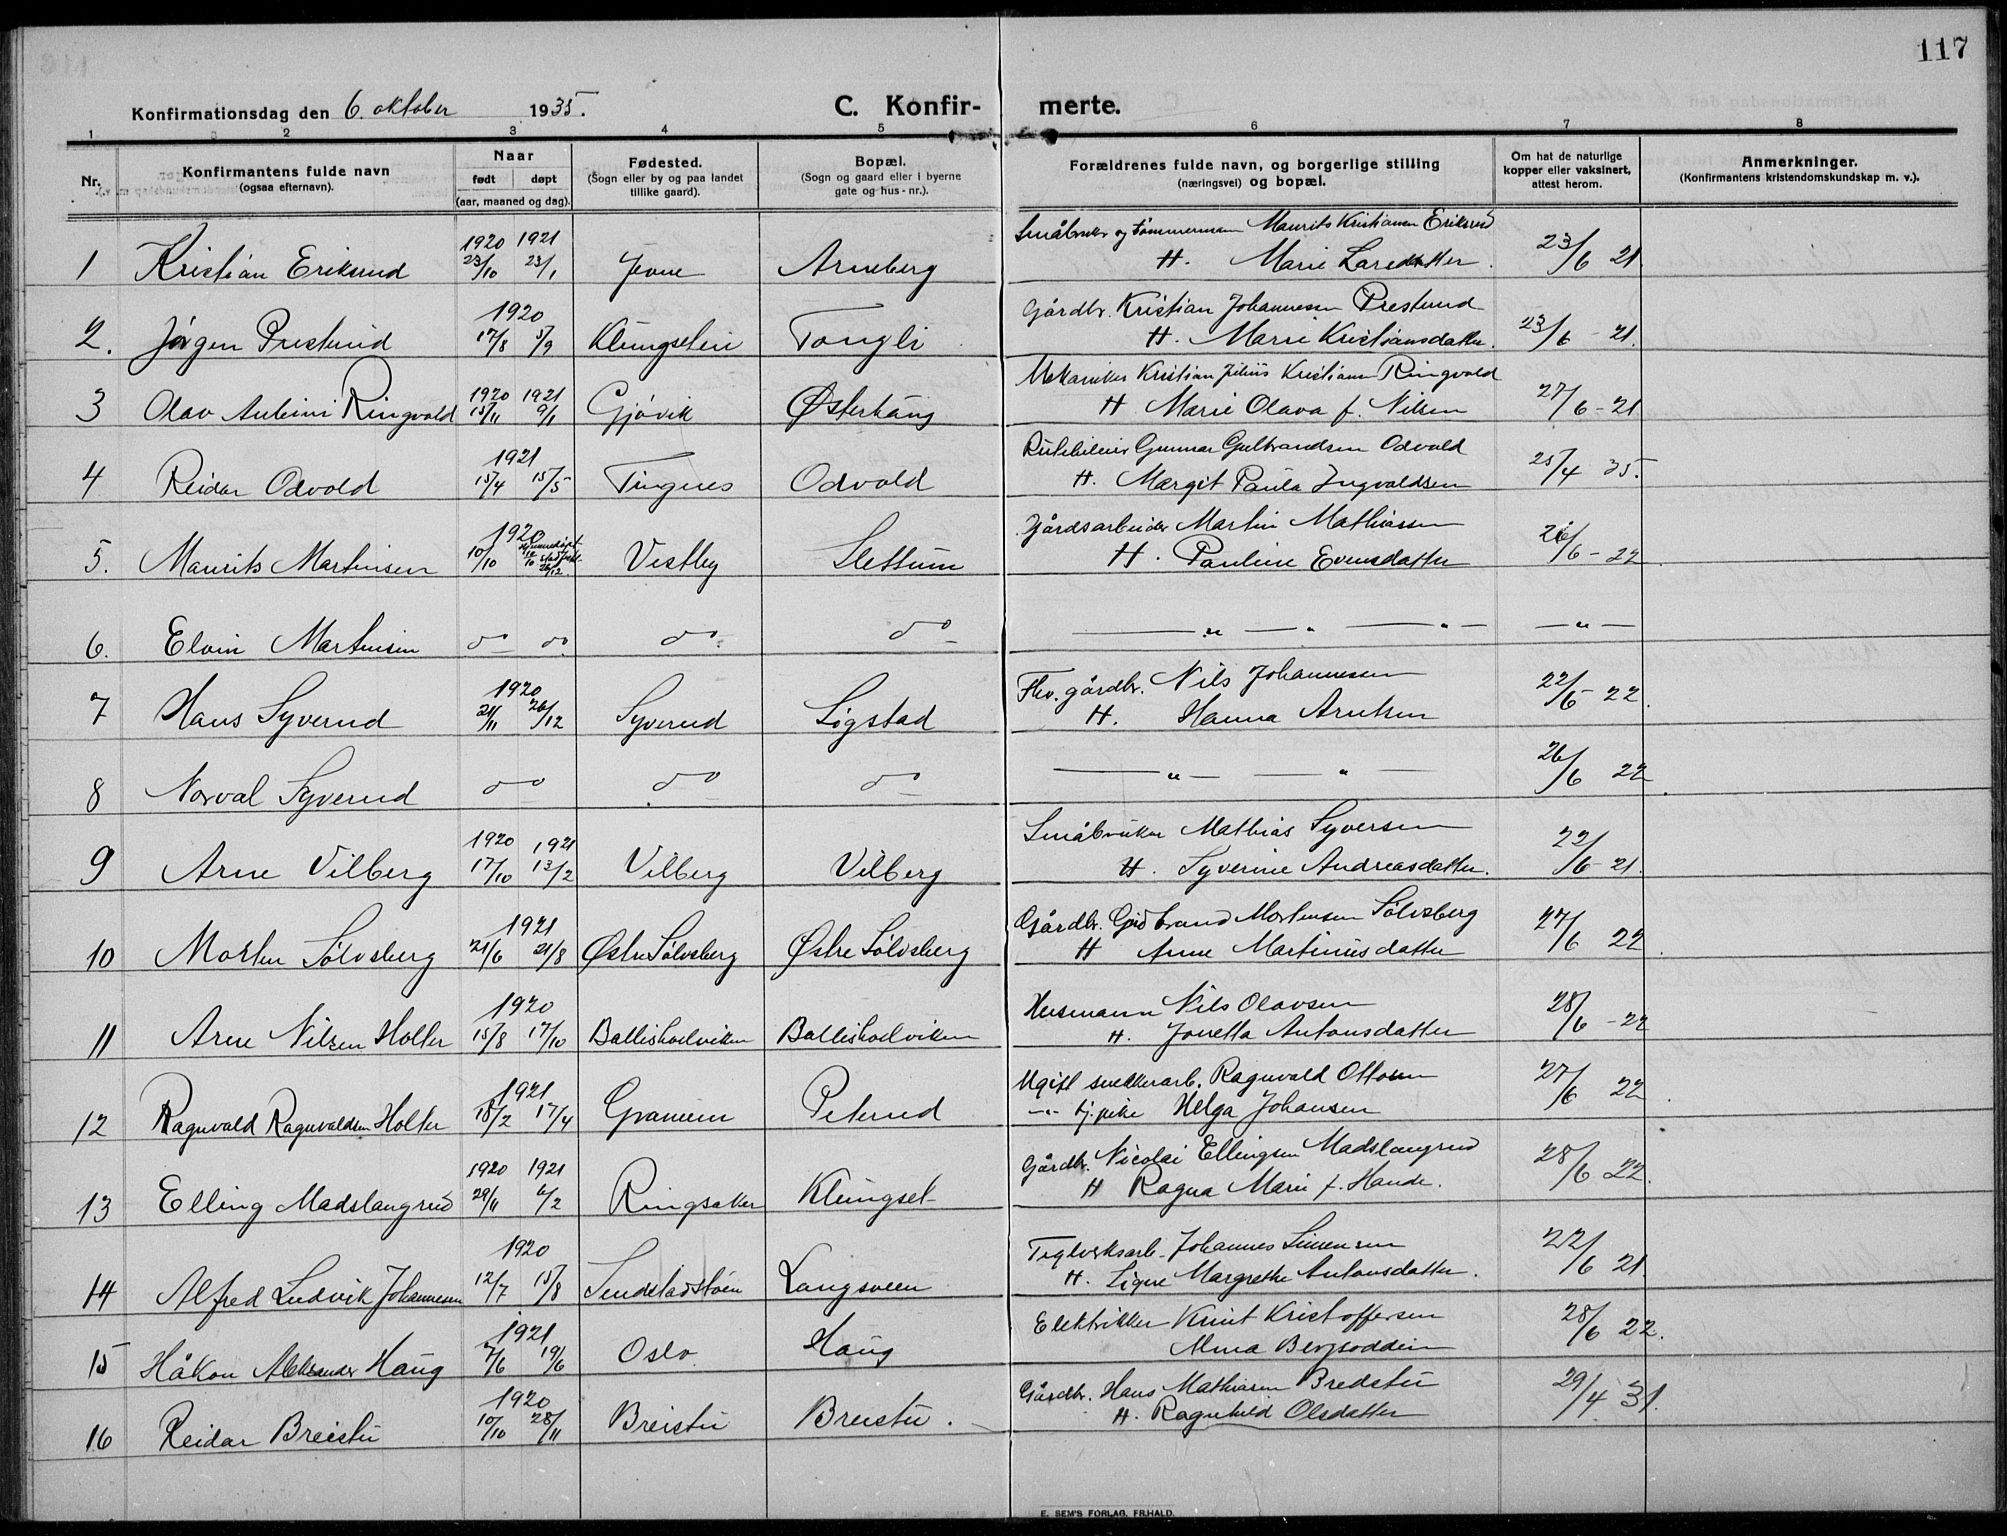 117
Konfirmationsdag den 6. oktober 1935.
C. Konfir- merte.
1 2 3 4 5 6 7 8
Nr.
Konfirmantens fulde navn
(ogsaa efternavn).
Naar
født døpt
(aar, maaned og dag).
Fødested.
(Sogn eller by og paa landet
tillike gaard).
Bopæl.
(Sogn og gaard eller i byerne
gate og hus-nr.).
Forældrenes fulde navn, og borgerlige stilling
(næringsvei) og bopæl.
Om hat de naturlige
kopper eller vaksinert,
attest herom.
Anmerkninger.
(Konfirmantens kristendomskundskap m. v.).
1 Kristian Eriksrud 1920 23/10 1921 23/1 Jevne Arneberg Småbruker og tømmermann Maurits Kristiansen Eriksrud
H. Marie Larsdatter. 23/6 21
2. Jörgen Prestrud 1920 17/8 5/9 Klungseteie Tongli Gårdbr. Kristian Johannessen Prestrud
H. Marie Kristiansdatter. 23/6 - 21.
3 Olav Antoni Ringvold 1920 15/11 1921 9/1 Gjøvik Østerhaug Mekaniker Kristian Julius Kristiansen Ringvold
H. Marie Olava f. Nilsen 27/6 - 21
4 Reidar Odvold 1921 15/4 15/5 Tingnes Odvold Rutebileier Gunnar Gulbrandsen Odvold
H. Margit Paula Ingvaldsen 25/4 35.
5. Maurits Martinsen 1920 10/10 Vestby Slettum Gårdsarbeider Martin Mathiassen
H. Pauline Evensdatter 26/6 - 22
6. Elvin Martinsen do do do do — „ — „ — „ — — „ —
7 Hans Syverud 1920 21/11 26/12 Syverud Sigstad Fhv. gårdbr. Nils Johannessen
H. Hanna Arntsen 22/6 - 22.
8 Norval Syverud do do do — „ — „ — 26/6 22
9 Arne Vilberg 1920 17/10 1921 13/2 Vilberg Vilberg Småbruker Mathias Syversen
H. Syverine Andreasdatter. 22/6 - 21.
10 Morten Sølvsberg 1921 21/6 21/8 Østre Sølvsberg Østre Sølvsberg Gårdbr. Gudbrand Mortensen Sølvsberg
H Anne Martinusdatter 27/6 22
11 Arne Nilsen Holter 1920 15/8 17/10 Ballishoelviken Ballishoelviken Husmann Nils Olavsen
H. Jonetta Antonsdatter 28/6 - 22
12 Ragnvald Ragnvaldsen Holter 1921 18/2 17/4 Granum Peterud Ugift snekkerarb. Ragnvald Ottosen
— „ — tj.pike Helga Johansen 27/6 22.
13 Elling Madslangrud 1920 29/11 1921 6/2 Ringsaker Klungset Gårdbr. Nicolai Ellingsen Madslangrud
H Ragna Marie f. Hande. 28/6 22.
14 Alfred Ludvik Johannessen 1920 12/7 15/8 Sundstadstøen Langsveen Teglverksarb. Johannes Simensen
H. Signe Margrethe Antonsdatter. 22/6 21.
15 Håkon Aleksander Haug 1921 7/6 19/6 Oslo Haug Elektrikker Knut Kristoffersen
Alma Bergsodden 28/6 22.
16 Reidar Breistu 1920 10/10 28/11 Breistu Breistu. Gårdbr. Hans Mathiasen Bredstu
H. Ragnhild Olsdatter 29/4 31.
E. SEM'S FORLAG, FR.HALD.